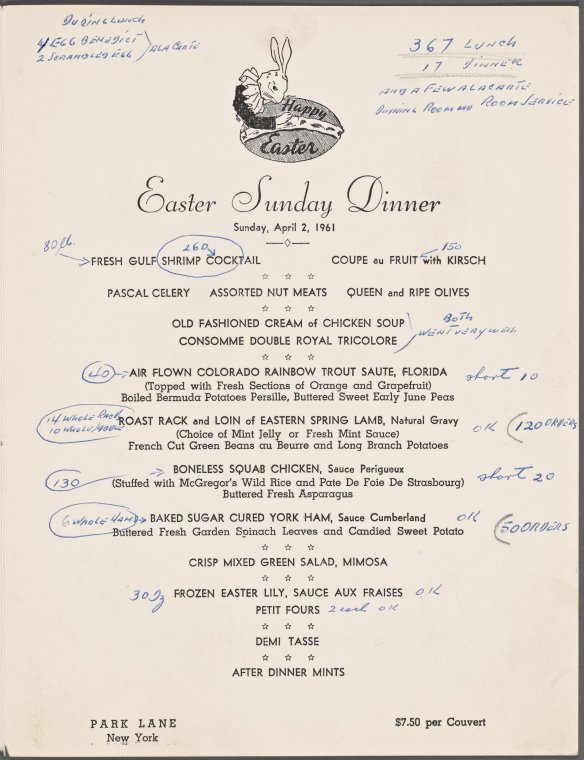 DURING LUNCH
4 EGG BENEDICT
2 SCRAMBLED EGG
ALA CARTE
367 LUNCH
17 DINNER
AND A FEW ALACARTE
DINNING ROOM AND ROOM SERVICE
Happy
Easter
Easter Sunday Dinner
Sunday, April 2, 1961
80 lb. 260 150
FRESH GULF SHRIMP COCKTAIL COUPE au FRUIT with KIRSCH
PASCAL CELERY ASSORTED NUT MEATS QUEEN and RIPE OLIVES
OLD FASHIONED CREAM of CHICKEN SOUP BOTH
CONSOMME DOUBLE ROYAL TRICOLORE WENT VERY WELL
40 AIR FLOWN COLORADO RAINBOW TROUT SAUTE, FLORIDA short 10
(Topped with Fresh Sections of Orange and Grapefruit)
Boiled Bermuda Potatoes Persille, Buttered Sweet Early June Peas
14 WHOLE RACK
10 WHOLE
ROAST RACK and LOIN of EASTERN SPRING LAMB, Natural Gravy OK 120 ORDERS
(Choice of Mint Jelly or Fresh Mint Sauce)
French Cut Green Beans au Beurre and Long Branch Potatoes
130 BONELESS SQUAB CHICKEN, Sauce Perigueux short 20
(Stuffed with McGregor's Wild Rice and Pate De Foie De Strasbourg)
Buttered Fresh Asparagus
6 WHOLE HAMS BAKED SUGAR CURED YORK HAM, Sauce Cumberland OK 50 ORDERS
Buttered Fresh Garden Spinach Leaves and Candied Sweet Potato
CRISP MIXED GREEN SALAD, MIMOSA
30 Dz FROZEN EASTER LILY, SAUCE AUX FRAISES OK
PETIT FOURS 2 each OK
DEMI TASSE
AFTER DINNER MINTS
PARK LANE
New York
$7.50 per Couvert